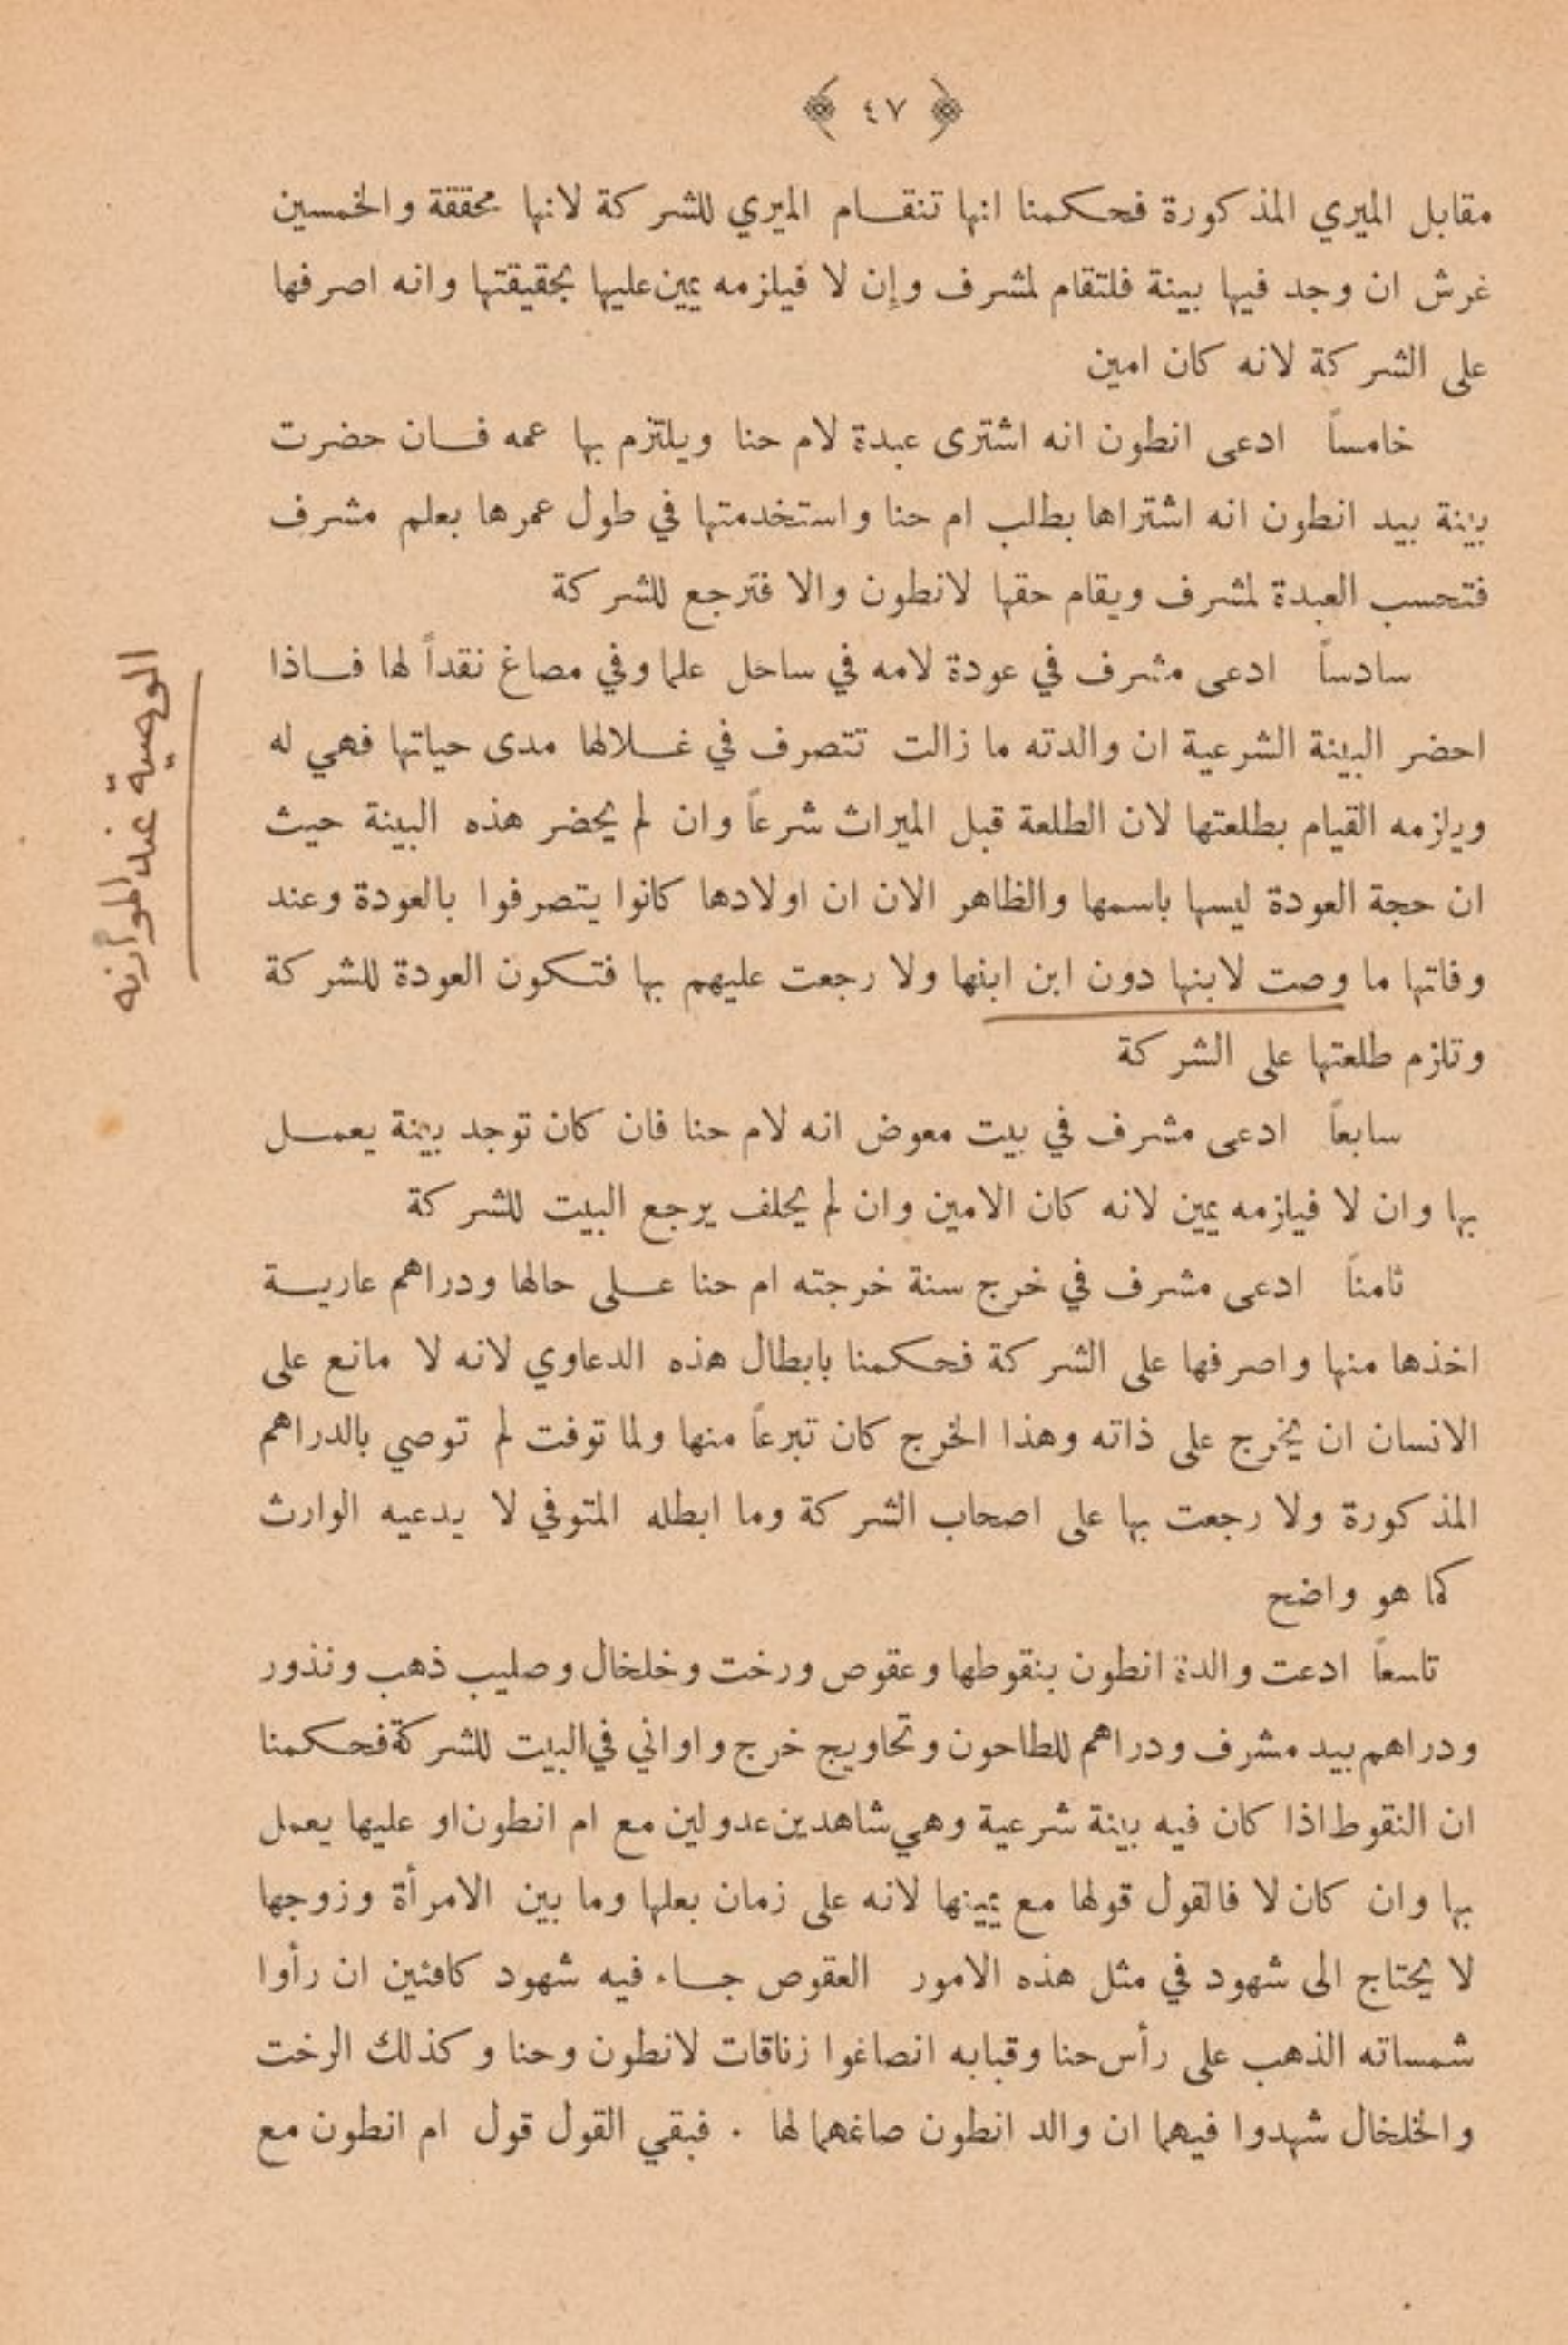 ﴿ ٤٧ ﴾
مقابل الميري المذكورة فحكمنا انها تنقام الميري للشركة لانها محققة والخمسين
غرش ان وجد فيها بينة فلتقام لمشرف وإن لا فيلزمه يمين عليها بحقيقتها وانه اصرفها
على الشركة لانه كان امين
خامساً ادعى انطون انه اشترى عبدة لام حنا ويلتزم بها عمه فان حضرت
بينة بيد انطون انه اشتراها بطلب ام حنا واستخدمتها في طول عمرها بعلم مشرف
فتحسب العبدة لمشرف ويقام حقها لانطون والا فترجع للشركة
سادساً ادعى مشرف في عودة لامه في ساحل علما وفي مصاغ نقداً لها فاذا
احضر البينة الشرعية ان والدته ما زالت تتصرف في غلالها مدى حياتها فهي له
ويلزمه القيام بطلعتها لان الطلعة قبل الميراث شرعاً وان لم يحضر هذه البينة حيث
ان حجة العودة ليسها باسمها والظاهر الان ان اولادها كانوا يتصرفوا بالعودة وعند
وفاتها ما وصت لابنها دون ابن ابنها ولا رجعت عليهم بها فتكون العودة للشركة
وتلزم طلعتها على الشركة
سابعاً ادعى مشرف في بيت معوض انه لام حنا فان كان توجد بينة يعمل
بها وان لا فيلزمه يمين لانه كان الامين وان لم يحلف يرجع البيت للشركة
ثامناً ادعى مشرف في خرج سنة خرجته ام حنا على حالها ودراهم عارية
اخذها منها واصرفها على الشركة فحكمنا بابطال هذه الدعاوي لانه لا مانع على
الانسان ان يخرج على ذاته وهذا الخرج كان تبرعاً منها ولما توفت لم توصي بالدراهم
المذكورة ولا رجعت بها على اصحاب الشركة وما ابطله المتوفي لا يدعيه الوارث
كما هو واضح
تاسعاً ادعت والدة انطون بنقوطها وعقوص ورخت وخلخال وصليب ذهب ونذور
ودراهم بيد مشرف ودراهم للطاحون وتحاويج خرج واواني في البيت للشركة فحكمنا
ان النقوط اذا كان فيه بينة شرعية وهي شاهدين عدولين مع ام انطون او عليها يعمل
بها وان كان لا فالقول قولها مع يمينها لانه على زمان بعلها وما بين الامرأة وزوجها
لا يحتاج الى شهود في مثل هذه الامور العقوص جاء فيه شهود كافئين ان رأوا
شمساته الذهب على رأس حنا وقبابه انصاغوا زناقات لانطون وحنا وكذلك الرخت
والخلخال شهدوا فيهما ان والد انطون صاغهما لها . فبقي القول قول ام انطون مع
الوصية عند الموارنه